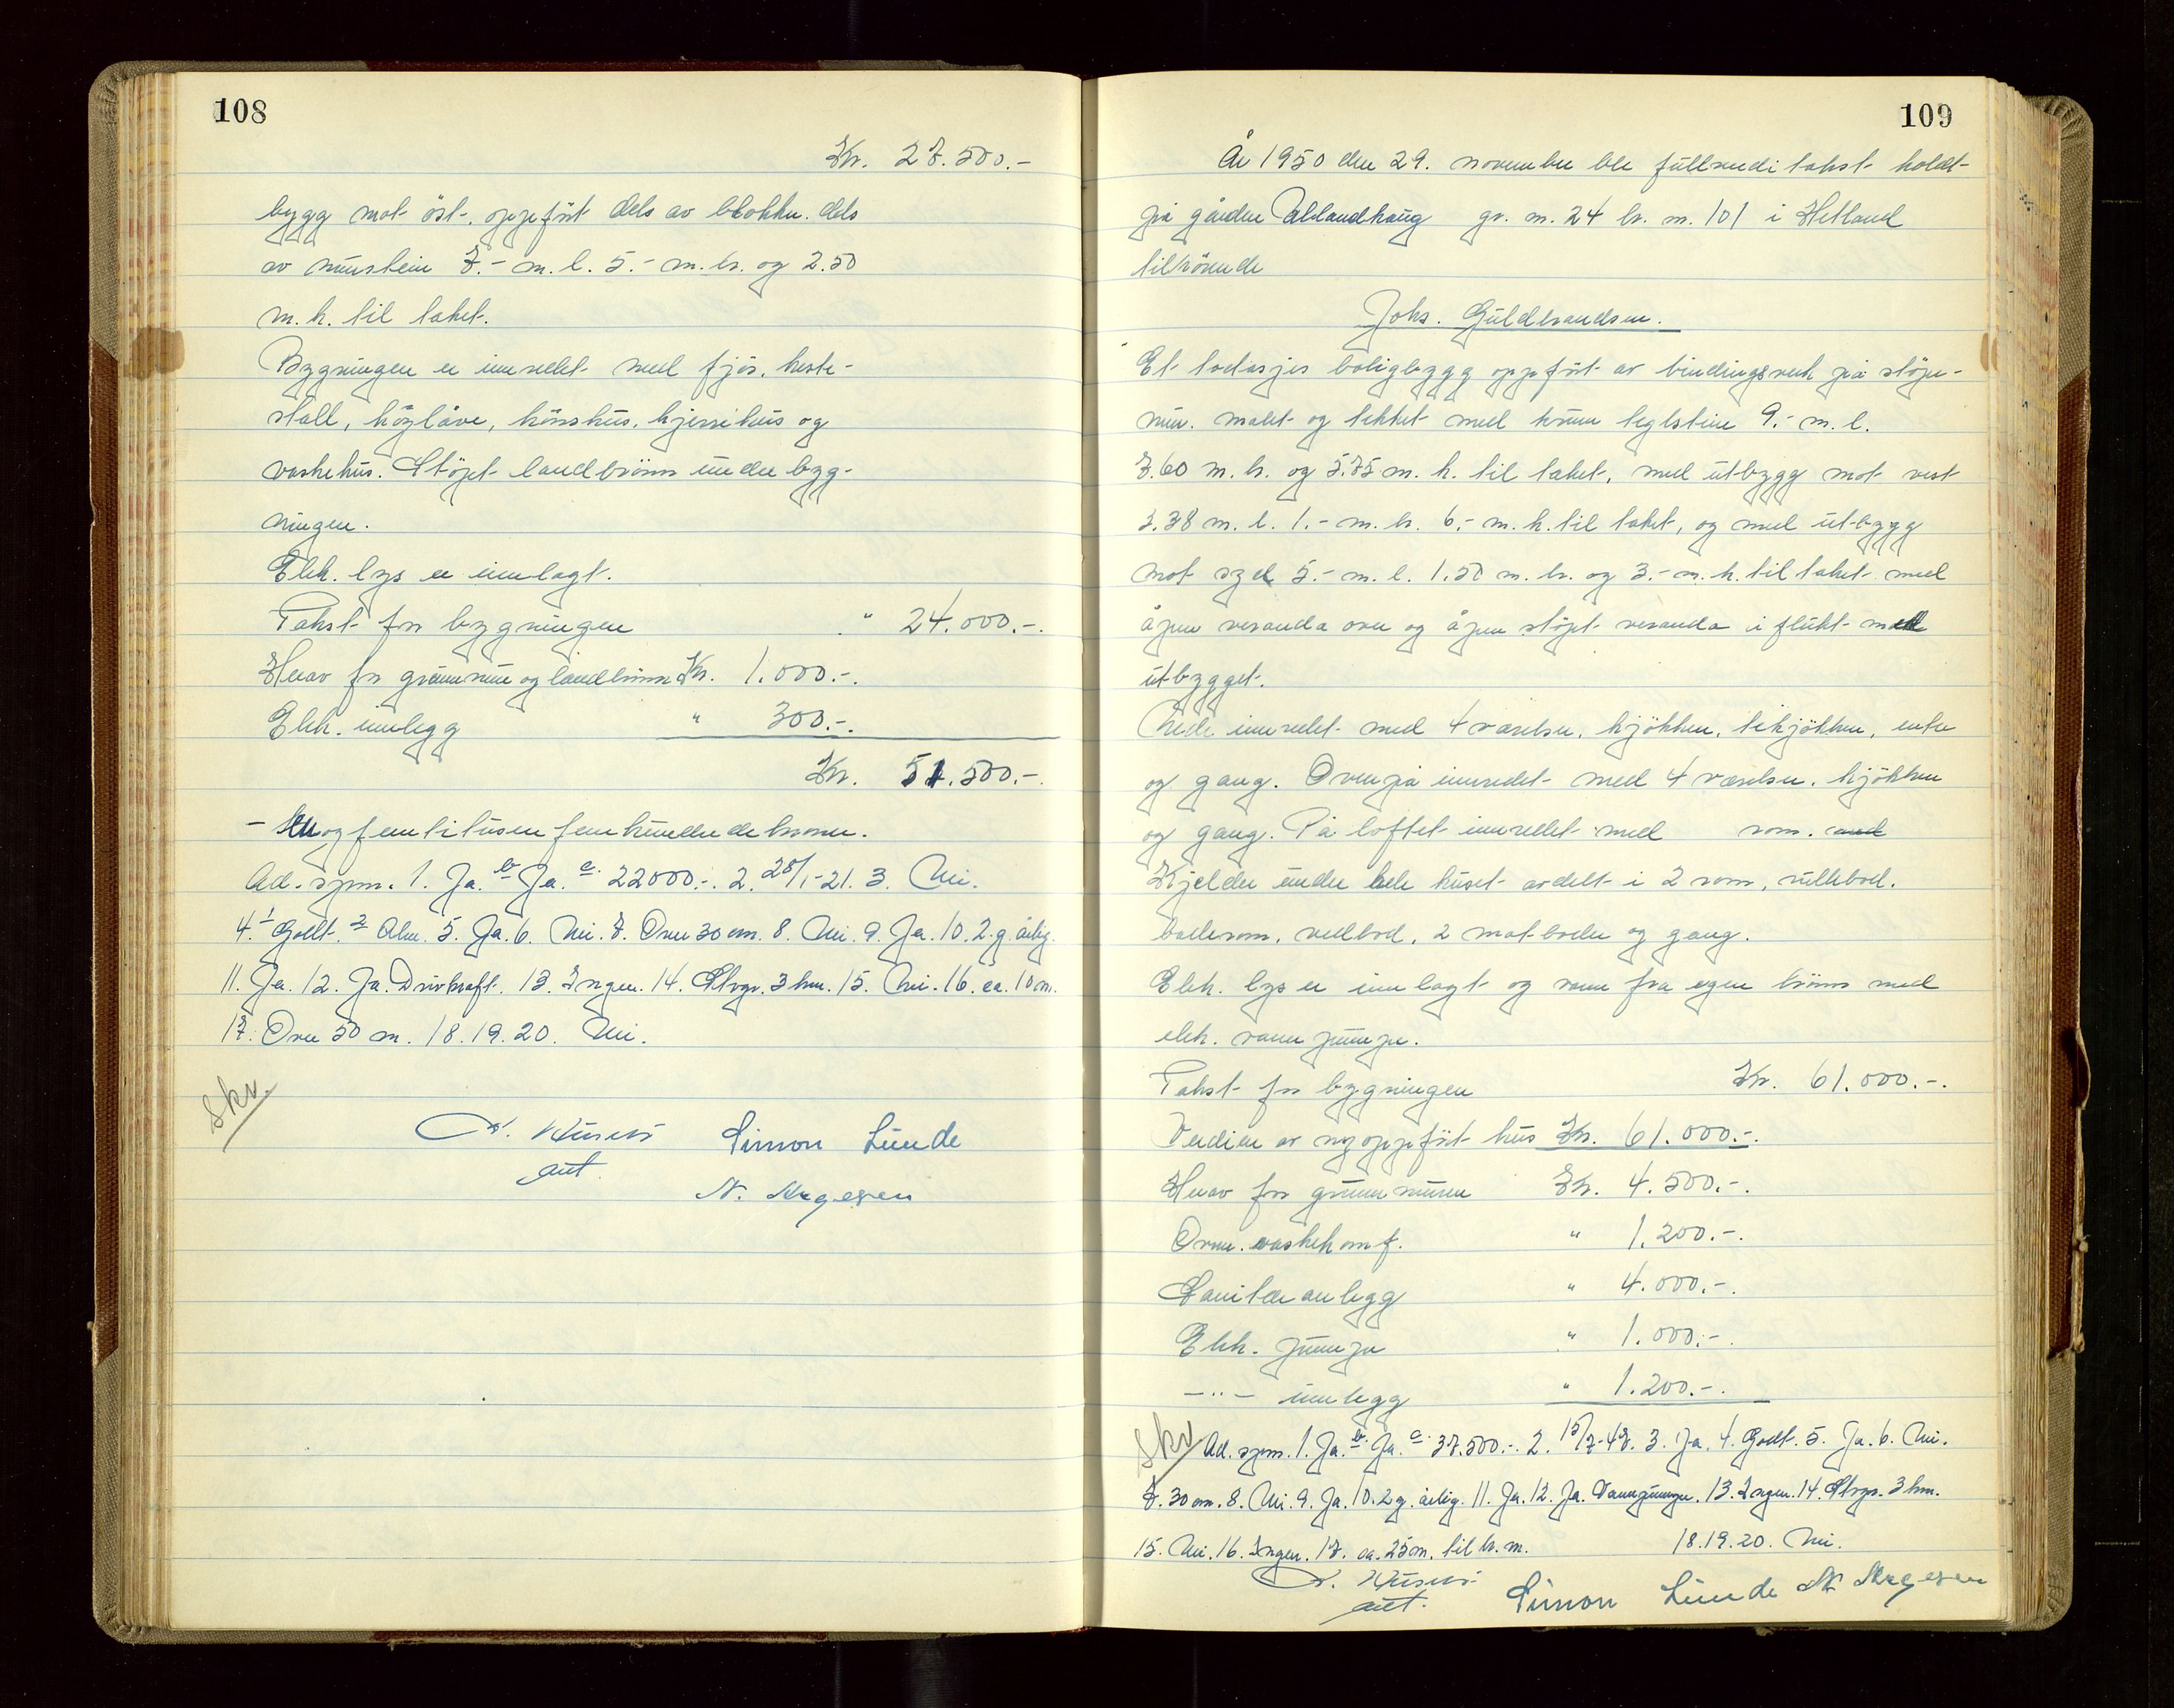 108
Kr. 27.500.-
bygg mot öst, oppfört dels av blokker, dels
av murstein 7.- m. l. 5.- m. br. og 2.50
m. h. til taket.
Bygningen er innredet med fjös, heste-
stall, höyløve, hönshus, kjerrehus og
vaskehus. Stöpt landbrönn under byg-
ningen.
Elek. lys er innlagt.
Takst for bygningen " 24.000.-
Herav for grunnmur og landbrönn Kr. 1.000.-
Elek. innlegg " 300.-
Kr. 51.500.-
- En og femti tusen fem hundrede kroner.
Ad. spm. 1. Ja. b Ja. c. 22000.-. 2. 28/1-21. 3. Nei.
4. 1 Godt. 2 Alm. 5. Ja. 6. Nei. 7. Over 30 cm. 8. Nei. 9. Ja. 10. 2 g. årlig.
11. Ja. 12. Ja. Drivkraft. 13. Ingen. 14. Stvgr. 3 km. 15. Nei. 16. ca. 10 m.
17. Over 50 m. 18. 19. 20. Nei.
Skv.
Simon Lunde
ant.
109
År 1950 den 29. november ble fullverditakst holdt
på gården Ullandhaug gr. nr. 24 br. nr. 101 i Hetland
tilhörende
Johs. Guldbrandsen.
Et toetasjes boligbygg oppfört av bindingsverk på stöpe-
mur, malet og tekket med krum teglstein 9.- m. l.
7.60 m. br. og 5.75 m. h. til taket, med utbygg mot vest
3.38 m. l. 1.- m. br. 6.- m. h. til taket, og med utbygg
mot syd 5.- m. l. 1.50 m. br. og 3.- m. h. til taket med
åpen veranda over og åpen stöpt veranda i flukt med
utbygget.
Nede innredet med 4 værelser, kjökken, tekjökken, entre
og gang. Ovenpå innredet med 4 værelser, kjökken
og gang. På loftet innredet med rom. med
Kjelder under hele huset avdelt i 2 rom, rullebod,
baderom, vedbod, 2 matboder og gang.
Elek. lys er innlagt og vann fra egen brönn med
elek. vannpumpe.
Takst for bygningen Kr. 61.000.-
Verdien av nyoppfört hus Kr. 61.000.-
Herav for grunnmuren Kr. 4.500.-
Ovner, vaskekomf. " 1.200.-
Sanitæranlegg " 4.000.-
Elek. pumpe " 1.000.-
-"- innlegg " 1.200.-
Skv
Ad. spm. 1. Ja. b. Ja. c. 37.500.-. 2. 15/7-47. 3. Ja. 4. Godt. 5. Ja. 6. Nei.
7. 30 cm. 8. Nei. 9. Ja. 10. 2 g. årlig. 11. Ja. 12. Ja. Vannpumpe. 13. Ingen. 14. Stvgr. 3 km.
15. Nei. 16. Ingen. 17. ca. 25 m. til br. m. 18. 19. 20. Nei.
ant. Simon Lunde